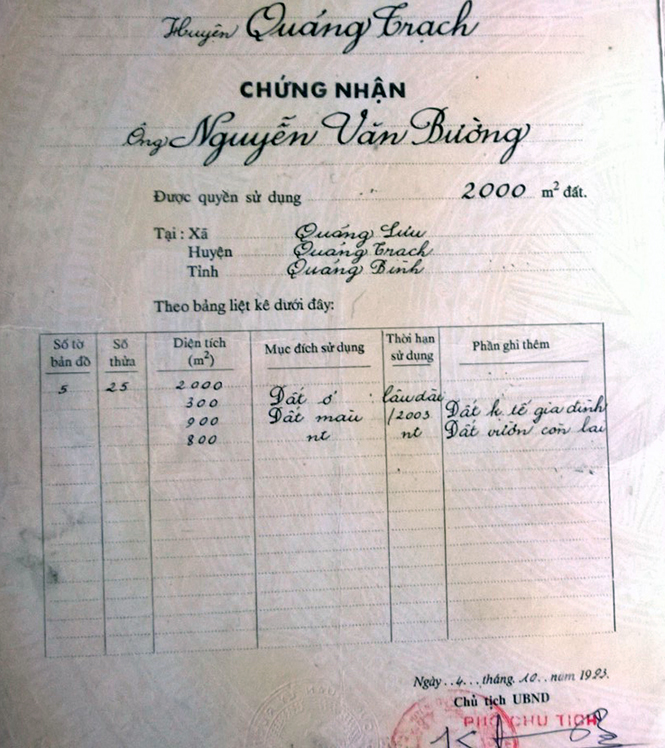 Huyện Quảng Trạch
CHỨNG NHẬN
Ông Nguyễn Văn Bường
Được quyền sử dụng 2000 m² đất.
Tại : Xã Quảng Lưu
Huyện Quảng Trạch
Tỉnh Quảng Bình
Theo bảng liệt kê dưới đây:
Số tờ bản đồ Số thửa Diện tích (m²) Mục đích sử dụng Thời hạn sử dụng Phần ghi thêm
5 25 2000
300 Đất ở lâu dài
900 Đất màu /2003 Đất k tế gia đình
800 nt nt Đất vườn còn lại
Ngày..4...tháng.10..năm 1993.
Chủ tịch UBND
PHÓ CHỦ TỊCH